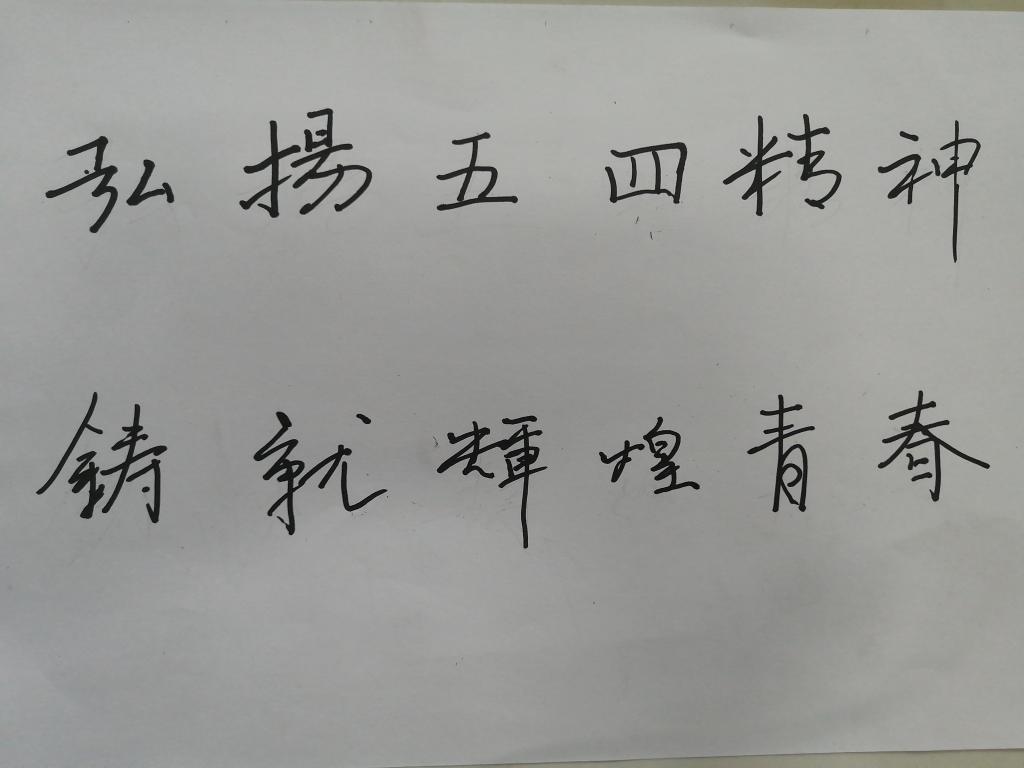 弘揚五四精神
鋳就輝煌青春